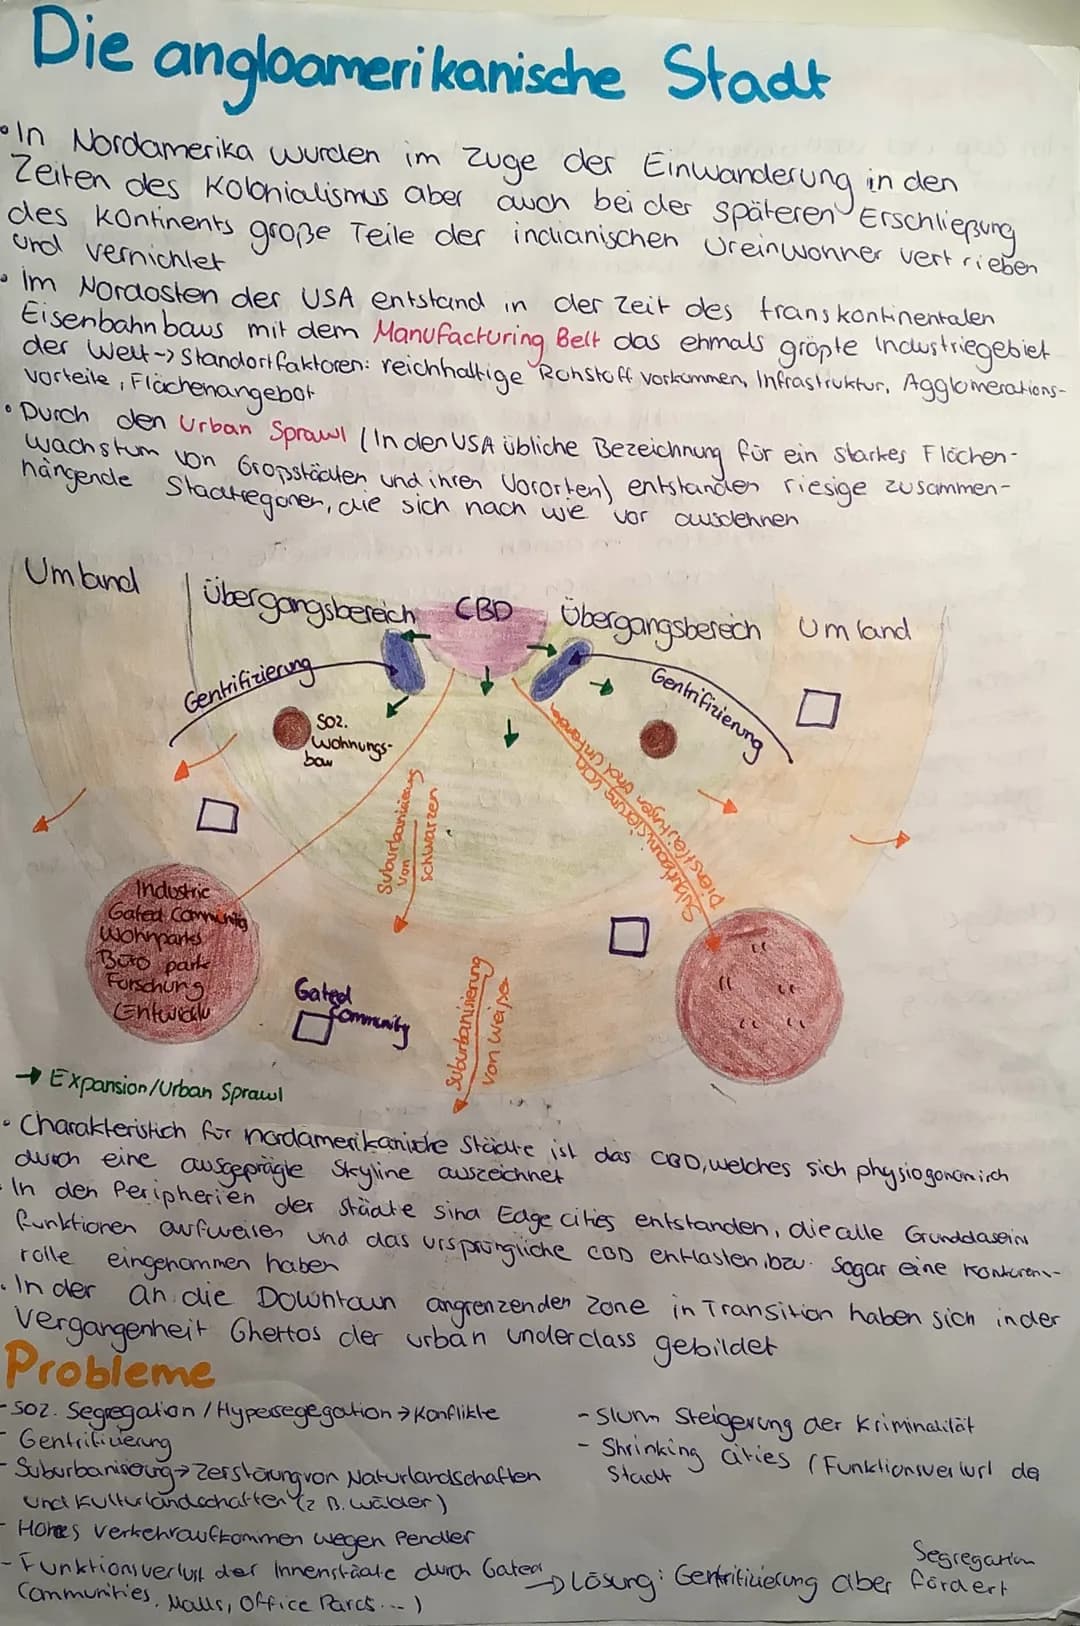 Die angloamerikanische Stadt
• In Nordamerika wurden im Zuge der Einwanderung in den
Zeiten des Kolonialismus aber auch bei der späteren Erschließung
des Kontinents große Teile der indianischen Ureinwohner vertrieben
und vernichtet
• Im Nordosten der USA entstand in der Zeit des transkontinentalen
Eisenbahnbaus mit dem Manufacturing Belt das ehmals größte Industriegebiet
der Welt -> Standortfaktoren: reichhaltige Rohstoff vorkommen, Infrastruktur, Agglomerations-
vorteile, Flächenangebot
• Durch den Urban Sprawl (In den USA übliche Bezeichnung für ein starkes Flächen-
wachstum von Großstädten und ihren Vororten) entstanden riesige zusammen-
hängende Stadtregonen, die sich nach wie vor ausdehnen
Umland
Übergangsbereich
CBD
Übergangsbereich
Umland
Gentrifizierung
Gentrifizierung
Soz.
Wohnungs-
bau
Suburbanisierung
von
Schwarzen
Suburbanisierung von
Dienstleistungen und Unternehm
Industrie
Gated Community
Wohnparks
Büro parks
Forschung
(Entwicklu
Gated
Community
Suburbanisierung
von Weißen
→ Expansion/Urban Sprawl
• Charakteristich für nordamerikanische Städte ist das CBD, welches sich physiogonomisch
durch eine ausgeprägte Skyline auszeichnet
• In den Peripherien der Städte sind Edge cities entstanden, die alle Grunddaseins
funktionen aufweisen und das ursprüngliche CBD entlasten, bzw. sogar eine Konkurenz-
rolle eingenommen haben
• In der an die Downtown angrenzenden Zone in Transition haben sich in der
Vergangenheit Ghettos der urban underclass gebildet
Probleme
- Soz. Segregation / Hypersegegation → Konflikte
- Gentrifizierung
- Suburbanisierung → Zerstörung von Naturlandschaften
und Kulturlandschaften (z B. Wälder)
- Hohes Verkehraufkommen wegen Pendler
- Funktionsverlust der Innenstädte durch Gated
Communities, Malls, Office Parcs ... )
- Slum Steigerung der Kriminalität
- Shrinking Cities (Funktionsverlurl de
Stadt
→ Lösung: Gentrifizierung aber fördert
Segregation